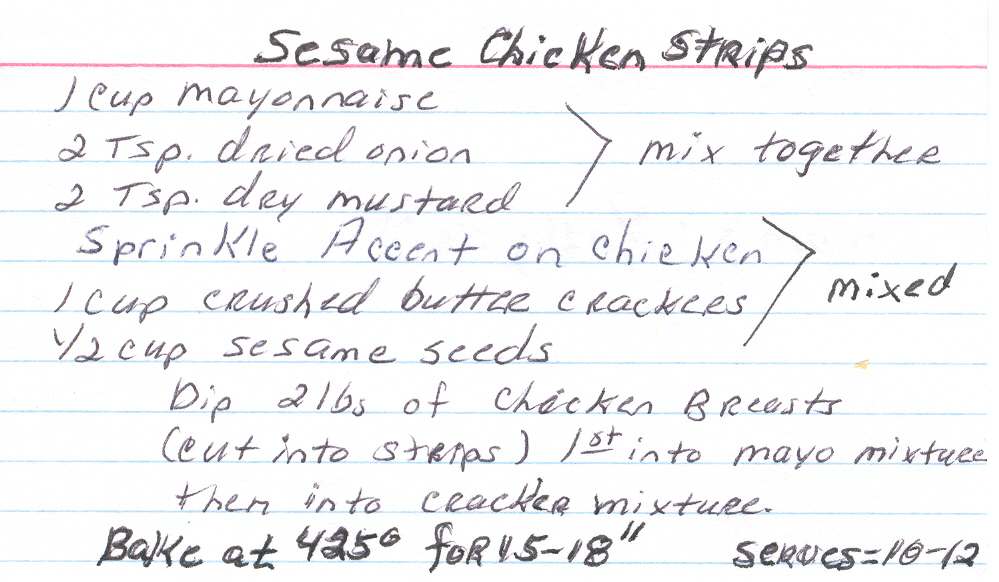 Sesame Chicken Strips
1 cup mayonnaise
2 Tsp. dried onion
2 Tsp. dry mustard
mix together
Sprinkle Accent on chicken
1 cup crushed butter crackers
1/2 cup sesame seeds
mixed
Dip 2 lbs of Chicken Breasts
(cut into strips) 1st into mayo mixture
then into cracker mixture.
Bake at 425° for 15-18" serves=10-12